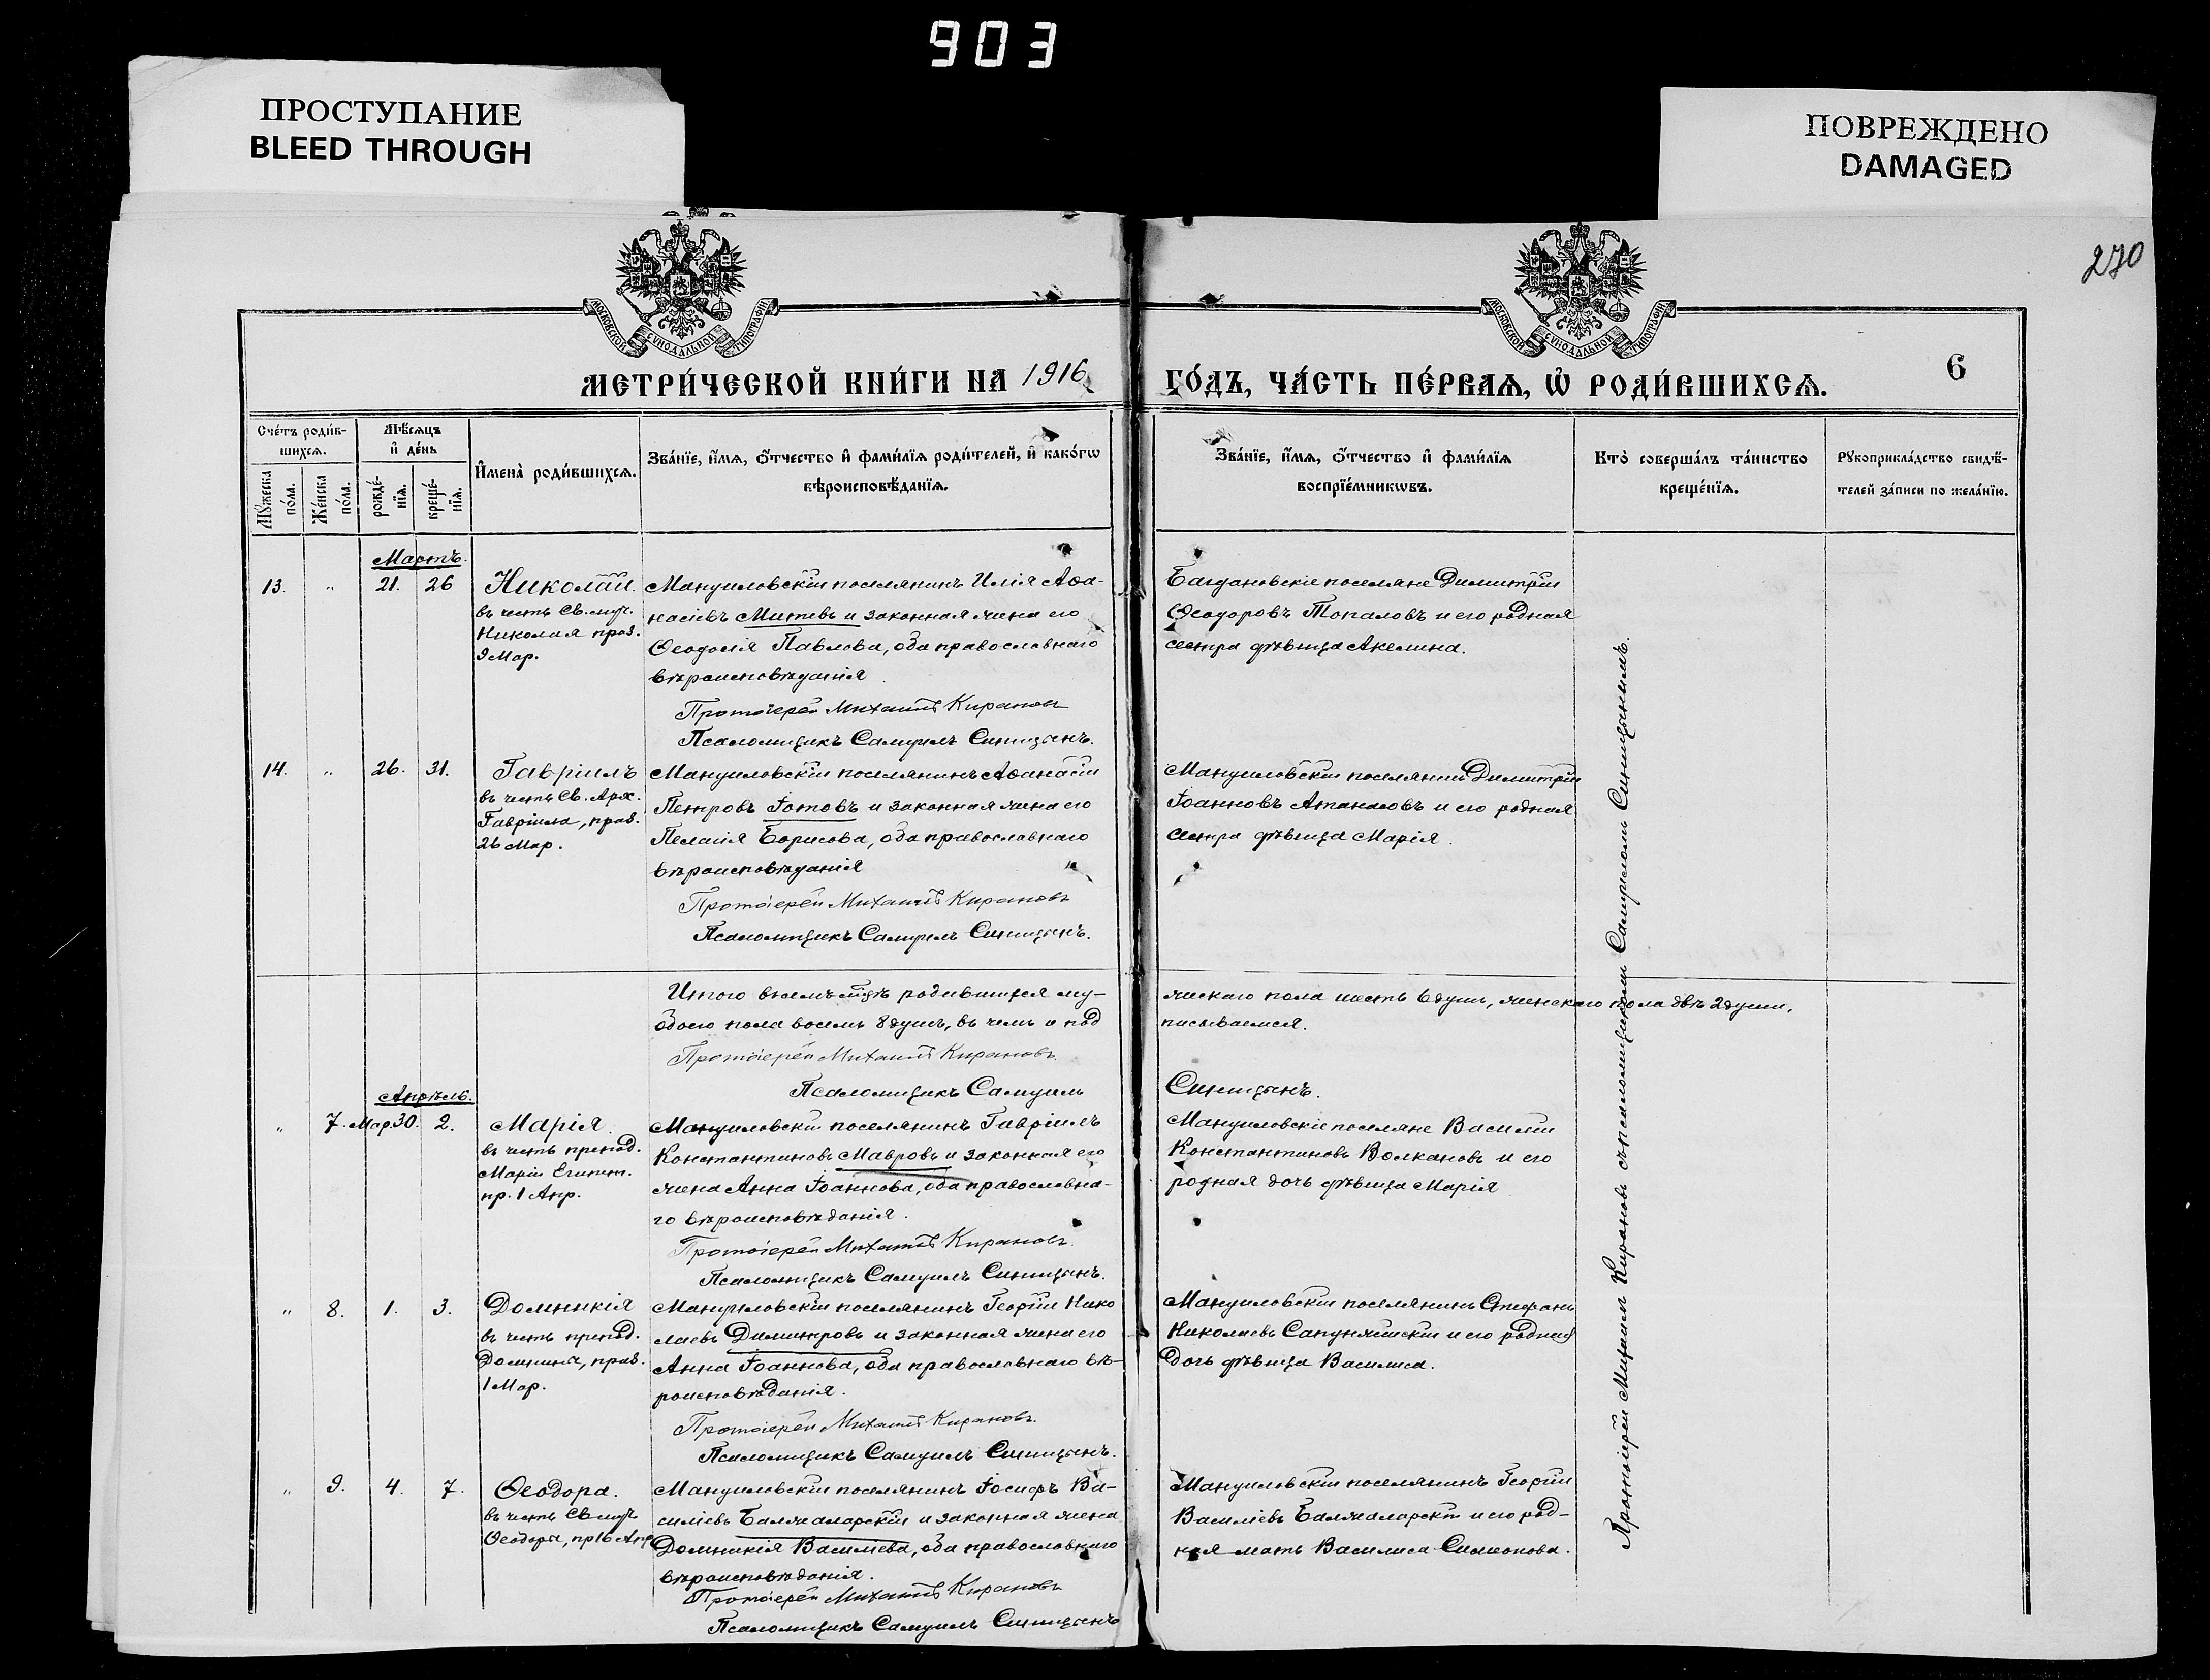 903
ПРОСТУПАНИЕ
BLEED THROUGH
ПОВРЕЖДЕНО
DAMAGED
270
МОСКОВСКОЙ СѴНОДАЛЬНОЙ ТИПОГРАФІИ
МОСКОВСКОЙ СѴНОДАЛЬНОЙ ТИПОГРАФІИ
МЕТРИ́ЧЕСКОЙ КНИ́ГИ НА 1916
ГО́ДЪ, ЧА́СТЬ ПЕ́РВАЯ, Ѡ҆ РОДИ́ВШИХСЯ.
6
Сче́тъ роди́в-
шихся.
Мѣ́сяцъ
и҆ де́нь
Мꙋжеска
по́ла.
Же́нска
по́ла.
рожде́-
нїя.
креще́-
нїя.
И҆мена̀ роди́вшихся.
Зва́нїе, и҆́мя, ѻ҆́тчество и҆ фами́лїя роди́телей, и҆ како́гѡ
вѣроисповѣ́данїя.
Зва́нїе, и҆́мя, ѻ҆́тчество и҆ фами́лїя
воспрїе́мникѡвъ.
Кто̀ соверша́лъ та́инство
креще́нїя.
Рꙋкоприкла́дство свидѣ́-
телей за́писи по жела́нїю.
Мартъ.
13. " 21. 26 Николай.
въ честь Св. муч.
Николая праз.
9 Мар.
Мануиловскій поселянинъ Илія Аѳа-
насіевъ Митевъ и законная жена его
Ѳеодосія Павлова, оба православнаго
вѣроисповѣданія.
Протоіерей Михаилъ Кирановъ
Псаломщикъ Самуилъ Синицынъ.
Багдановскіе поселяне Димитрій
Ѳеодоровъ Топаловъ и его родная
сестра дѣвица Акелина.
14. " 26. 31. Гавріилъ
въ честь Св. Арх.
Гавріила, праз.
26 Мар.
Мануиловскій поселянинъ Аѳанасій
Петровъ Іотовъ и законная жена его
Пелагія Борисова, оба православнаго
вѣроисповѣданія
Протоіерей Михаилъ Кирановъ
Псаломщикъ Самуилъ Синицынъ.
Мануиловскій поселянинъ Димитрій
Іоанновъ Атанасовъ и его родная
сестра дѣвица Марія.
Итого въ семъ мцѣ родившихся му-
жескаго пола шесть 6 душъ, женскаго пола двѣ 2 души,
обоего пола восемь 8 душъ, въ чемъ и под
писываемся.
Протоіерей Михаилъ Кирановъ.
Псаломщикъ Самуилъ
Синицынъ.
Апрѣль.
" 7. Мар. 30. 2. Марія.
въ честь препод.
Маріи Египет.
пр. 1 Апр.
Мануиловскій поселянинъ Гавріилъ
Константиновъ Мавровъ и законная его
жена Анна Іоаннова, оба православна-
го вѣроисповѣданія.
Протоіерей Михаилъ Кирановъ.
Псаломщикъ Самуилъ Синицынъ.
Мануиловскіе поселяне Василій
Константиновъ Волкановъ и его
родная дочь дѣвица Марія
" 8. 1. 3. Домникія
въ честь препод.
Домнины, праз.
1 Мар.
Мануиловскій поселянинъ Георгій Нико
лаевъ Димитровъ и законная жена его
Анна Іоаннова, оба православнаго вѣ-
роисповѣданія.
Протоіерей Михаилъ Кирановъ.
Псаломщикъ Самуилъ Синицынъ.
Мануиловскій поселянинъ Стефанъ
Николаевъ Сапунжийскій и его родная
дочь дѣвица Василиса.
" 9. 4. 7. Ѳеодора.
въ честь Св. муч.
Ѳеодоры, пр 16 Апр
Мануиловскій поселянинъ Іосифъ Ва-
силіевъ Балжаларскій и законная жена
Домникія Василіева, оба православнаго
вѣроисповѣданія.
Протоіерей Михаилъ Кирановъ
Псаломщикъ Самуилъ Синицынъ
Мануиловскій поселянинъ Георгій
Василіевъ Балжаларскій и его род-
ная мать Василиса Симеонова.
Протоіерей Михаилъ Кирановъ съ псаломщикомъ Самуиломъ Синицынымъ.